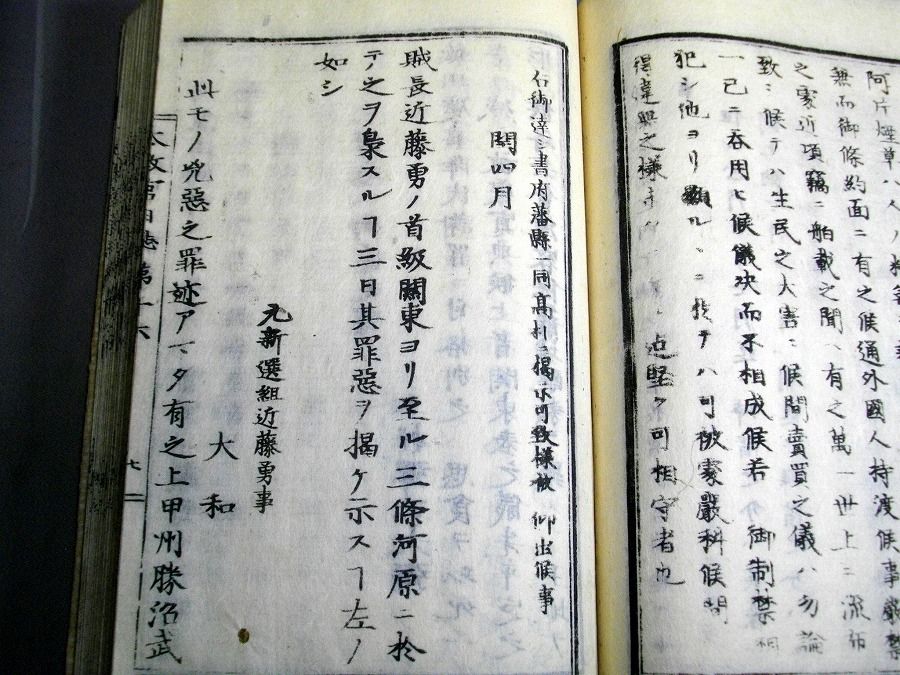 阿片煙草ハ人ノ精
無而御條約面ニ有之候通外國人持渡候事嚴禁
之處近頃竊ニ舶載之聞ヘ有之萬一世上ニ流布
致シ候テハ生民之大害ニ候間賣買之儀ハ勿論
一己ニ呑用ヒ候儀決而不相成候若御制禁相
犯シ他ヨリ顯ルヽニ於テハ可被處嚴科候間
得違無之様
堅ク可相守者也
右御達シ書府藩縣一同高札ニ揭示可致様被仰出候事
閏四月
賊長近藤勇ノ首級關東ヨリ至ル三條河原ニ於
テ之ヲ梟スルヿ三日其罪惡ヲ揭ケ示スヿ左ノ
如シ
元新選組近藤勇事
大和
此モノ兇惡之罪迹アマタ有之上甲州勝沼武
太政官日誌第十六
七